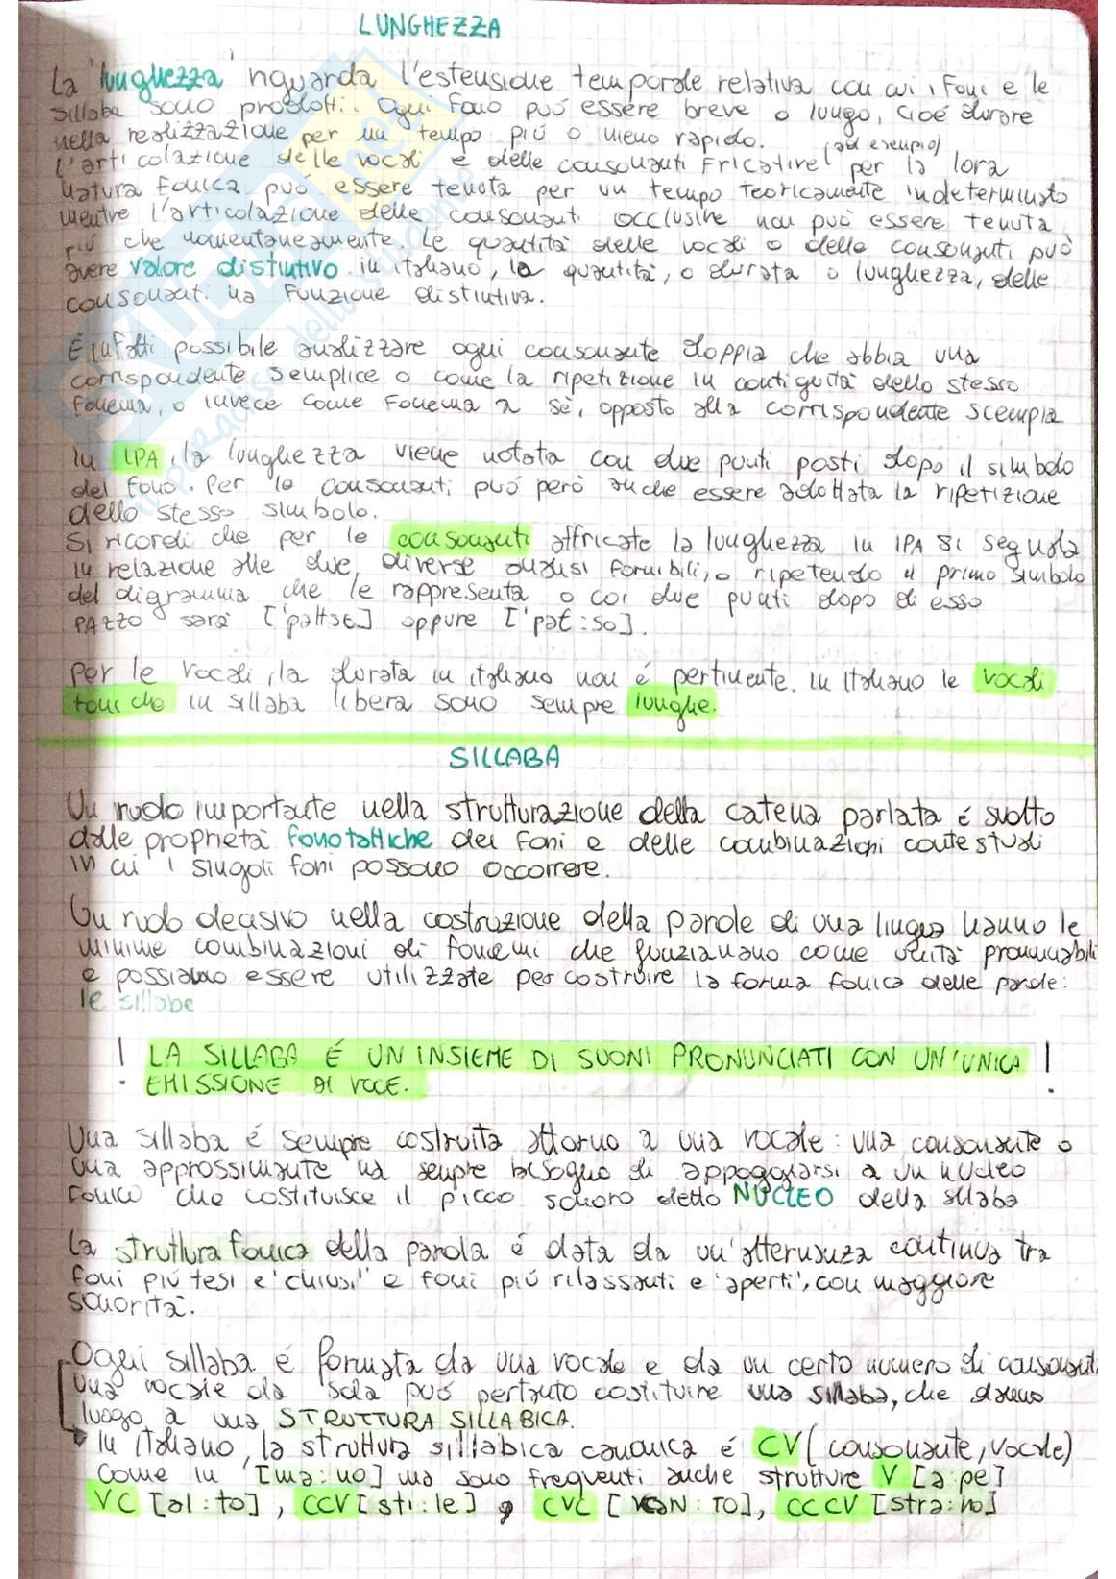 LUNGHEZZA
La lunghezza riguarda l'estensione temporale relativa con cui i foni e le
sillabe sono prodotti. Ogni fono può essere breve o lungo, cioè durare
nella realizzazione per un tempo più o meno rapido. (ad esempio)
L'articolazione delle vocali e delle consonanti fricative per la loro
natura fonica può essere tenuta per un tempo teoricamente indeterminato
mentre l'articolazione delle consonanti occlusive non può essere tenuta
più che momentaneamente. Le quantità delle vocali o delle consonanti può
avere valore distintivo in italiano, la quantità, o durata o lunghezza, delle
consonanti ha funzione distintiva.
È infatti possibile analizzare ogni consonante doppia che abbia una
corrispondente semplice o come la ripetizione in contiguità dello stesso
fonema, o invece come fonema a sè, opposto alla corrispondente scempia
In IPA, la lunghezza viene notata con due punti posti dopo il simbolo
del fono. Per le consonanti può però anche essere adottata la ripetizione
dello stesso simbolo.
Si ricordi che per le consonanti affricate la lunghezza in IPA si segnala
in relazione alle due diverse analisi fornibili, o ripetendo il primo simbolo
del digramma che le rappresenta o coi due punti dopo di esso
PAZZO sarà ['pattso] oppure ['pat:so].
Per le vocali, la durata in italiano non é pertinente. In italiano le vocali
toniche in sillaba libera sono sempre lunghe.
SILLABA
Un ruolo importante nella strutturazione della catena parlata é svolto
dalle proprietà fonotattiche dei foni e delle combinazioni contestuali
in cui i singoli foni possono occorrere.
Un ruolo decisivo nella costruzione della parole di una lingua hanno le
minime combinazioni di fonemi che funzionano come unità pronunciabili
e possiamo essere utilizzate per costruire la forma fonica delle parole:
le sillabe
! LA SILLABA É UN INSIEME DI SUONI PRONUNCIATI CON UN'UNICA !
EMISSIONE DI VOCE.
Una sillaba é sempre costruita attorno a una vocale: una consonante o
una approssimante ha sempre bisogno di appoggiarsi a un nucleo
fonico che costituisce il picco sonoro detto NUCLEO della sillaba
La struttura fonica della parola é data da un'alternanza continua tra
foni più tesi e "chiusi" e foni più rilassanti e 'aperti', con maggiore
sonorità.
Ogni sillaba é formata da una vocale e da un certo numero di consonanti
una vocale da sola può pertanto costituire una sillaba, che danno
luogo a una STRUTTURA SILLABICA.
In italiano, la struttura sillabica canonica é CV (consonante, vocale)
come in [ma:no] ma sono frequenti anche strutture V [a:pe]
VC [al:to], CCV [sti:le], CVC [VAN:TO], CCCV [stra:no]